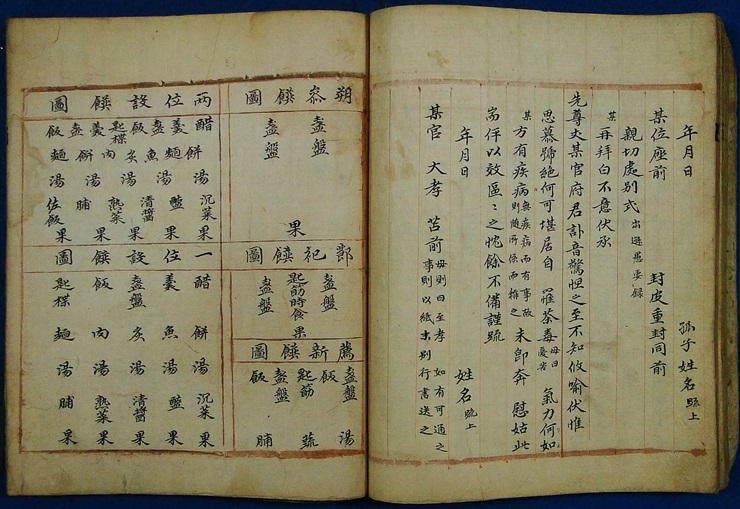 年月日 孫子姓名 疏上
某位座前 封皮重封同前
親切處別式 出 要錄
某再拜白不意伏承
先尊丈某官府君訃音驚怛之至不知攸喩伏惟
思慕號絶何可堪居自 罹荼毒 母曰憂苦 氣力何如
某方有疾病 無疾病而有事故則隨所係而措之 未卽奔 慰姑此
耑伻以效區〻之忱餘不備謹疏
年月日 姓名 疏上
某官 大孝 苫前 母則曰至孝 如有可通之事則以紙末別行書送之
朔叅饌圖
盞盤 盞盤
果
節祀饌圖
盞盤 匙筯時食 盞盤
果
薦新饌圖
盞盤 飯 匙筯 盞盤 飯
湯 蔬 脯
兩位設饌圖
醋 羹 盞 飯 匙楪 羹 盞 飯
餠 麵 魚 炙 肉 餠 麵
湯 湯 湯 湯 湯
沉菜 醢 淸醬 熟菜 脯 佐飯
果 果 果 果 果 果
一位設饌圖
醋 羹 盞盤 飯 匙楪
餠 魚 炙 肉 麵
湯 湯 湯 湯 湯
沉菜 醢 淸醬 熟菜 脯
果 果 果 果 果